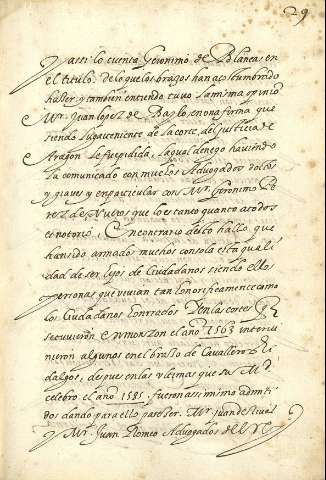 29
y assi lo cuenta Geronimo de Blancas en
el titulo. de lo que los brazos han acostumbrado
haber, y tambien entiendo tuvo la misma opinio
Mr. Juan lopez de en una firma que
siendo lugarteniente de la corte del Justicia de
Aragon le fue pidida, la qual denego haviendo
la comunicado con muchos Advogados doctos
y graves y en particular con Mr. Geronimo
que lo es tanto quanto a todos
es notorio, En contrario desto hallo que
han sido armados muchos con sola esta quali
dad de ser hijos de Ciudadanos siendo ellos
personas que vivian tan honorificamente como
los Ciudadanos honrrados en las cortes q
se tuvieron en monzon el año 1563 intervi
nieron algunos en el brasso de Cavalleros Hi
dalgos, despues en las ultimas que su Md.
celebro el año 1585. fueron assi mismo admeti
dos dando para ello parecer. Mr. Juan de Rivas
y Mr. Juan Romeo Advogados del